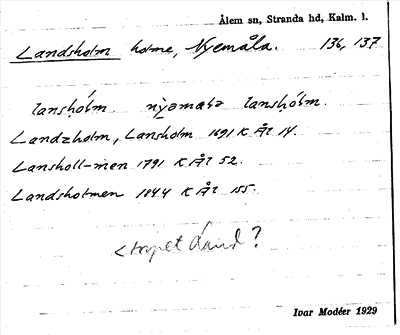 Ålem sn, Stranda hd, Kalm. l.
Landsholm holme, Nyemåla. 136, 137
lansḥólm nỳəmala lansḥólm.
Landzholm, Lansholm 1691 K År 14.
Lansholl-men 1791 K År 52.
Landsholmen 1844 K År 155.
< torpet Land?
Ivar Modéer 1929